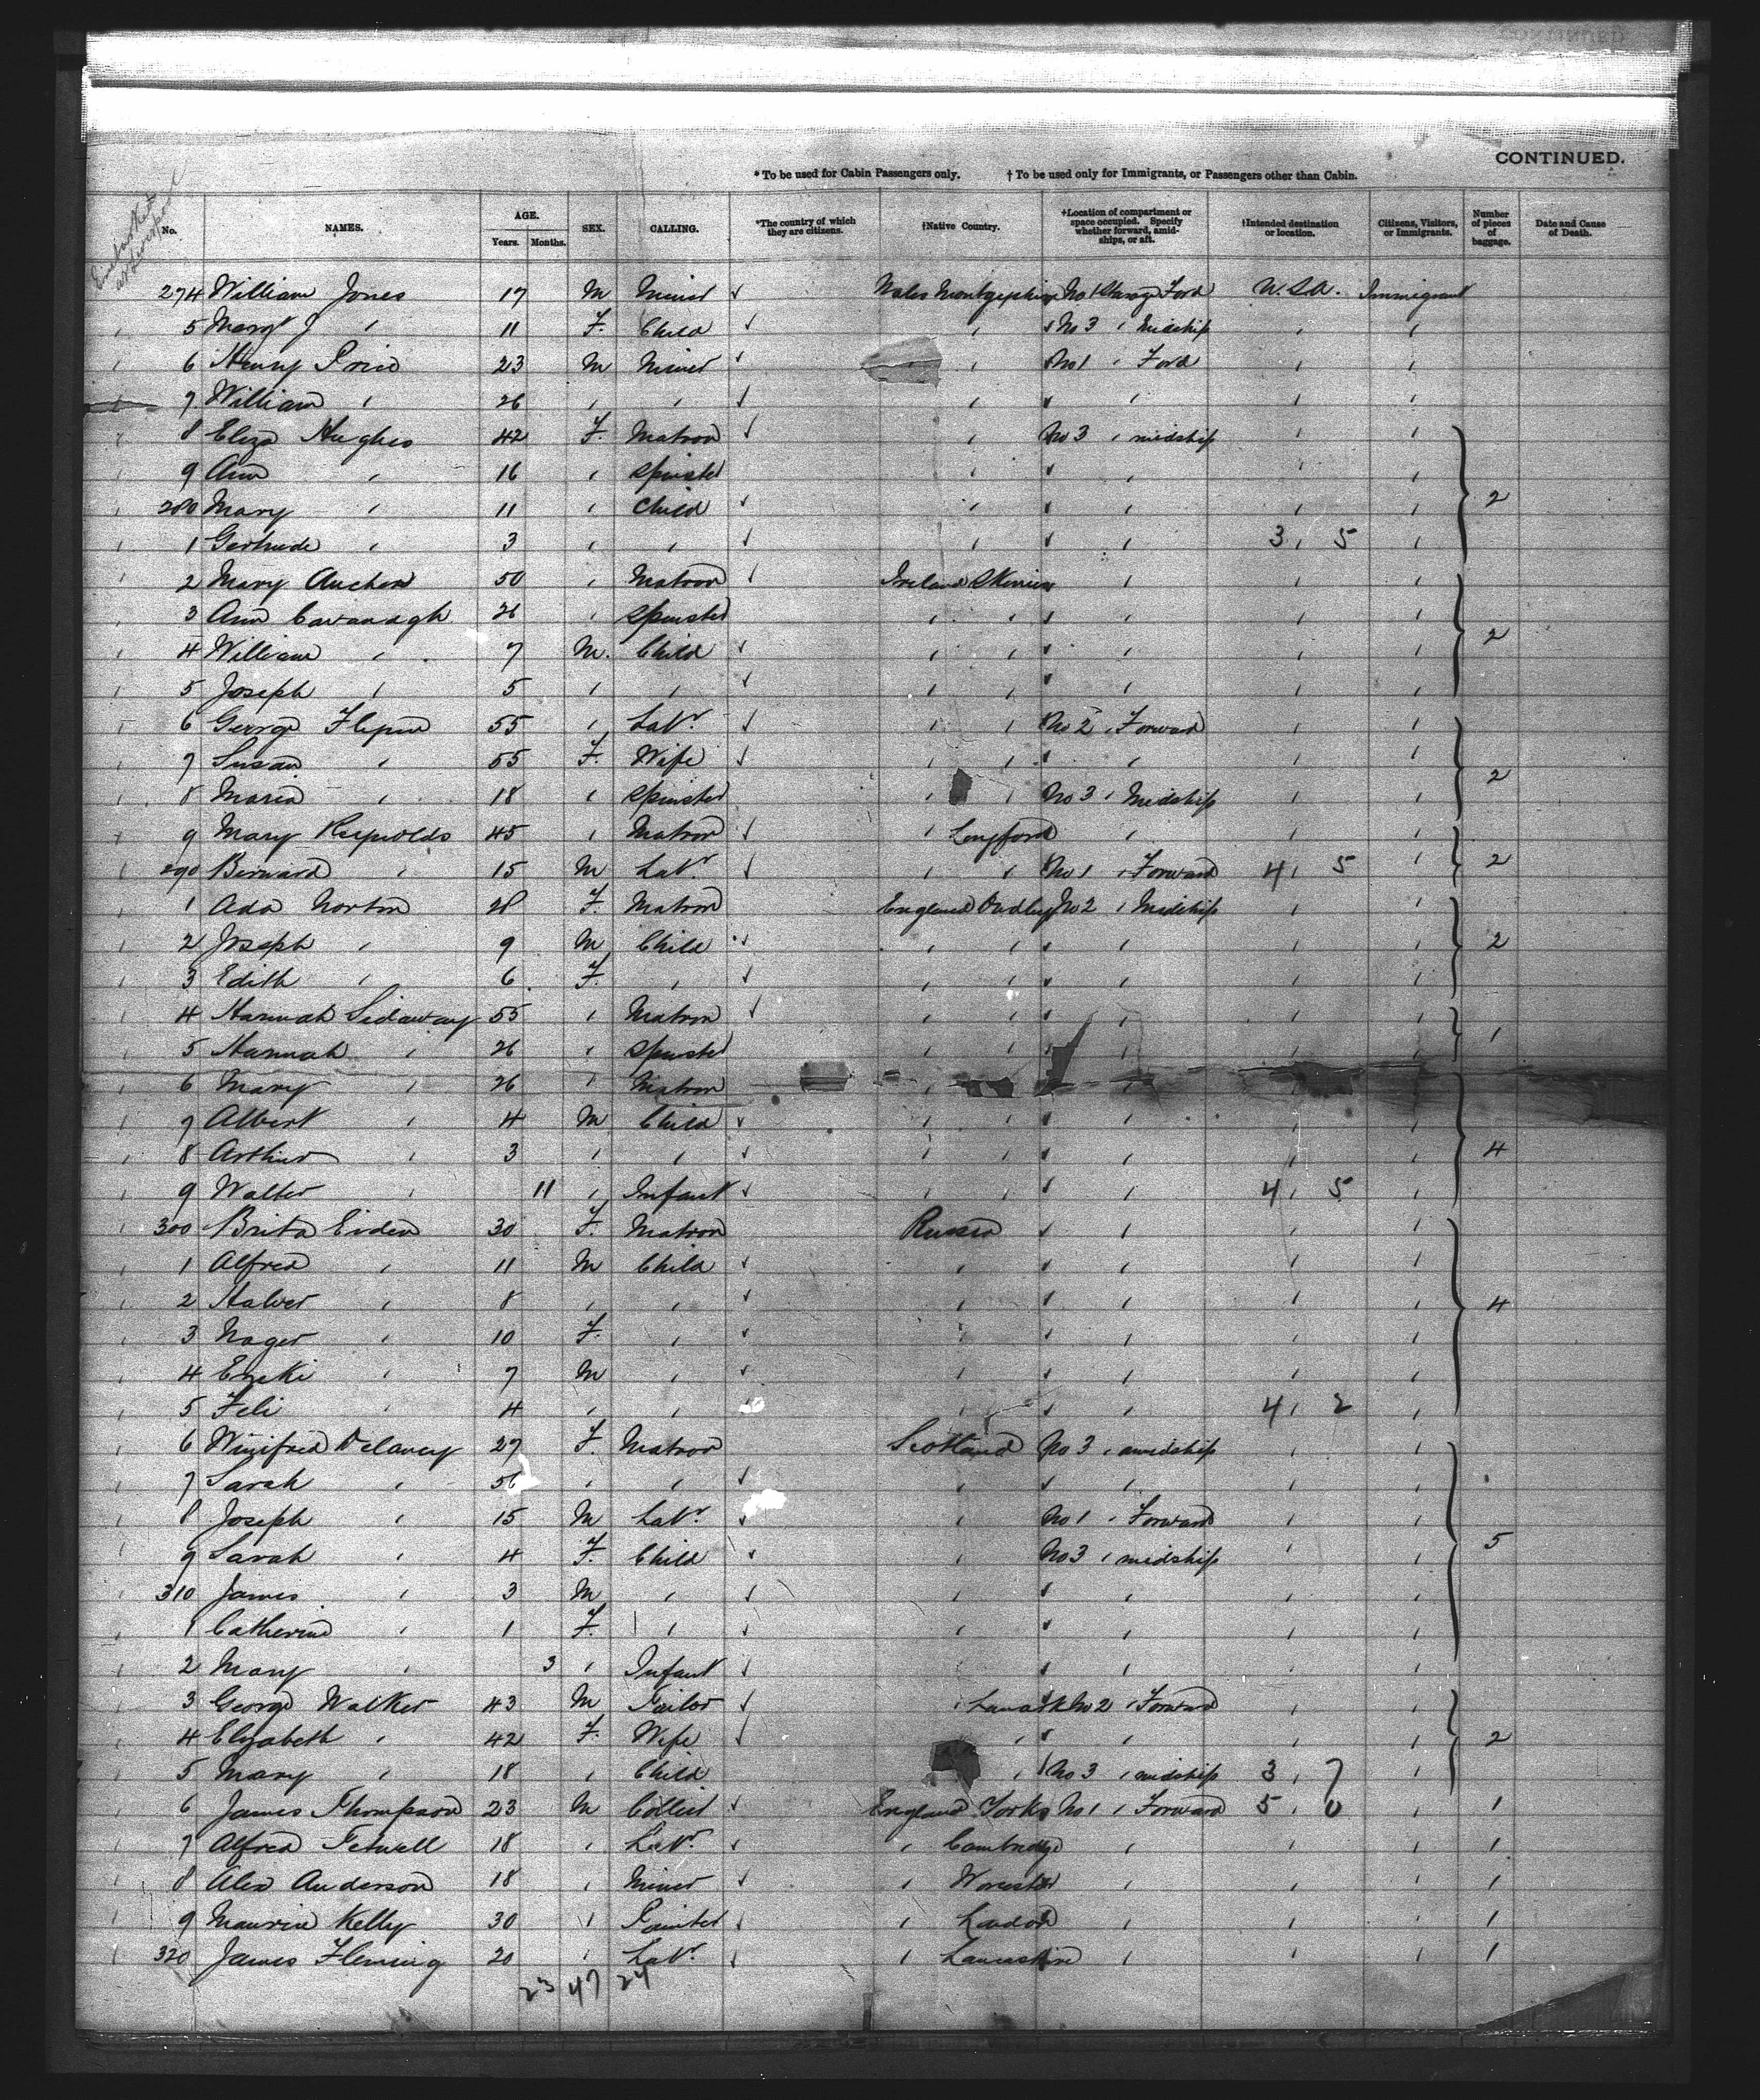 CONTINUED.
* To be used for Cabin Passengers only. † To be used only for Immigrants, or Passengers other than Cabin.
Embarked at Liverpool
No. NAMES. AGE. Years. Months. SEX. CALLING. *The country of which they are citizens. †Native Country. †Location of compartment or space occupied. Specify whether forward, amidships, or aft. †Intended destination or location. Citizens, Visitors, or Immigrants. Number of pieces of baggage. Date and Cause of Death.
274 William Jones 17 M Miner Wales No 1 Ford U.S.A. Immigrant
5 Margt J " 11 F. Child " No 3 " Midship " "
6 Henry Price 23 M Miner " No 1 " Ford " "
7 William " 26 " " " " " " "
8 Eliza Hughes 42 F. Matron " No 3 " midship " "
9 Ann " 16 " Spinster " " " " "
280 Mary " 11 " Child " " " " " 2
1 Gertrude " 3 " " " " " 3 " 5 "
2 Mary 50 " Matron Ireland " " " "
3 Ann Cavanagh 26 " Spinster " " " " " "
4 William " 7 M. Child " " " " " " 2
5 Joseph " 5 " " " " " " " "
6 George 55 " Labr " " No 2 " Forward " "
7 Susan " 55 F. Wife " " " " " "
8 Maria " 18 " Spinster " " No 3 " Midship " " 2
9 Mary Reynolds 45 " Matron " Longford " " "
290 Bernard " 15 M Labr " " No 1 " Forward 4 " 5 " 2
1 Ada Norton 28 F. Matron England Dudley No 2 " Midship " "
2 Joseph " 9 M Child " " " " " " 2
3 Edith " 6 F. " " " " " " "
4 Hannah Sidaway 55 " Matron " " " " " "
5 Hannah " 26 " Spinster " " " " " " 1
6 Mary " 26 " Matron " " " "
7 Albert " 4 M Child " " " " " "
8 Arthur " 3 " " " " " " " " 4
9 Walter " 11 " Infant " " " " 4 " 5 "
300 Brita 30 F. Matron Russia " " " "
1 Alfred " 11 M Child " " " " "
2 Halver " 8 " " " " " " " 4
3 " 10 F. " " " " " "
4 " 7 M " " " " " "
5 " 4 " " " " " 4 " 2 "
6 Winifred Delaney 27 F. Matron Scotland No 3 " amidship " "
7 Sarah " " " " " " " "
8 Joseph " 15 M Labr " No 1 " Forward " "
9 Sarah " 4 F. Child " No 3 " midship " " 5
310 James " 3 M " " " " " "
1 Catherine " 1 F. " " " " " "
2 Mary " 3 " Infant " " " "
3 George Walker 43 M Tailor " Lanark No 2 " Forward " "
4 Elizabeth " 42 F. Wife " " " " " 2
5 Mary " 18 " Child " No 3 " midship 3 " 7 "
6 James Thompson 23 M Collier England Yorks No 1 " Forward 5 " 0 " 1
7 Alfred 18 " Labr " Cambridge " " " 1
8 Alex Anderson 18 " Miner " Worcester " " " 1
9 Maurice Kelly 30 " Painter " London " " " 1
320 James Fleming 20 " Labr " Lancashire " " " 1
23 47 24